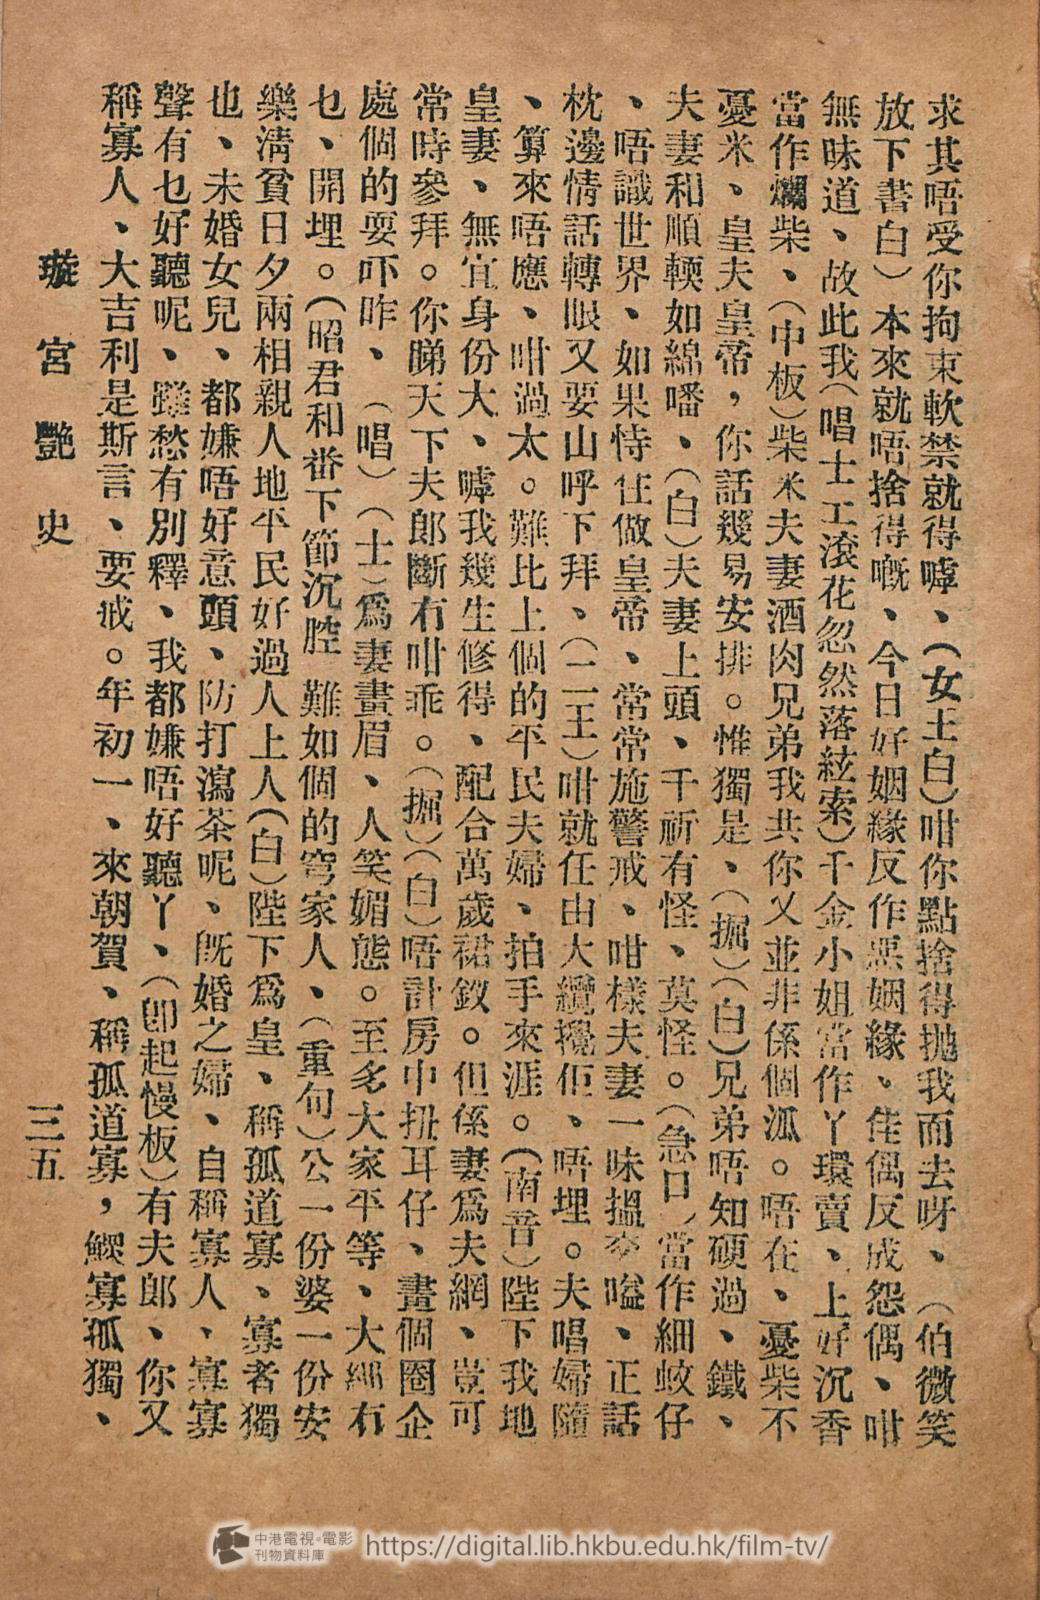 求其唔受你拘束軟禁就得嘑、(女王白)咁你點捨得抛我而去呀、(伯微笑
放下書白)本來就唔捨得嘅、今日好姻緣反作惡姻緣、佳偶反成怨偶、咁
無昧道、故此我(唱士工滾花忽然落絃索)千金小姐當作丫環賣、上好沉香
當作爛柴、(中板)柴米夫妻酒肉兄弟我共你又並非係個泒。唔在、憂柴不
憂米、皇夫皇帝，你話幾易安排。惟獨是、(掘)(白)兄弟唔知硬過、鐵、
夫妻和順輭如綿噃、(白)夫妻上頭、千祈有怪、莫怪。(急口)當作細蚊仔
、唔識世界、如果恃住做皇帝、常常施警戒、咁樣夫妻一味搵嗌、正話
枕邊情話轉眼又要山呼下拜、(二王)咁就任由大纜攪佢、唔埋。夫唱婦隨
、算來唔應、咁過太。難比上個的平民夫婦、拍手來涯。(南音)陛下我地
皇妻、無宜身份大、嘑我幾生修得、配合萬歲裙釵。但係妻爲夫網、豈可
常時參拜。你睇天下夫郎斷冇咁乖。(掘)(白)唔計房中扭耳仔、畫個圈企
處個的耍吓咋、(唱)(士)爲妻畫眉、人笑媚態。至多大家平等、大繩冇
乜、開埋。(昭君和番下節沉腔)難如個的窮家人、(重句)公一份婆一份安
樂淸貧日夕兩相親人地平民好過人上人(白)陛下爲皇、稱孤道寡、寡者獨
也、未婚女兒、都嫌唔好意頭、防打瀉茶呢、旣婚之婦、自稱寡人、寡寡
聲有乜好聽呢、雖愁有別釋、我都嫌唔好聽丫、(卽起慢板)有夫郎、你又
稱寡人、大吉利是斯言、要戒。年初一、來朝賀、稱孤道寡，鰥寡孤獨、
璇宮艷史
三五
中港電視・電影
刊物資料庫
https://digital.lib.hkbu.edu.hk/film-tv/